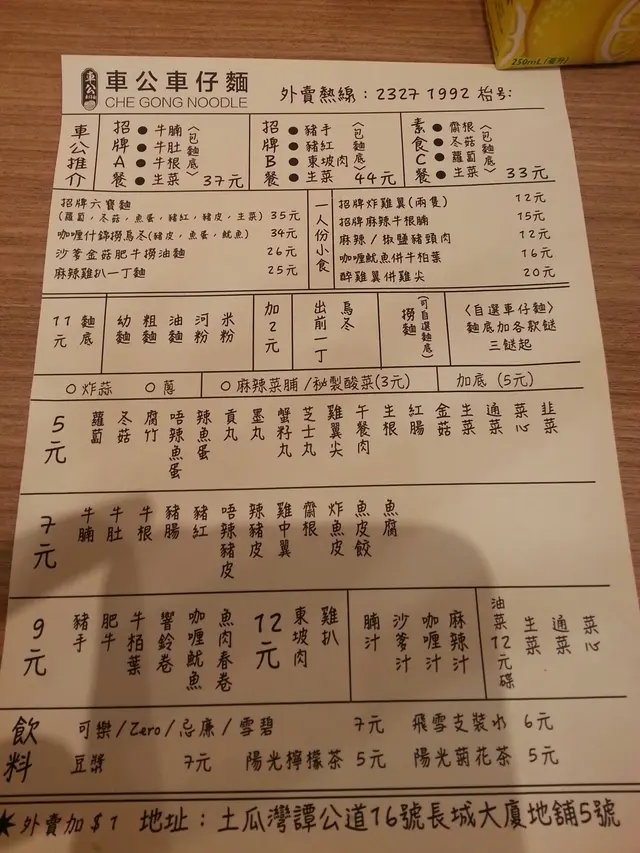 250mL(毫升)
車公
車公車仔麵
CHE GONG NOODLE
外賣熱線：2327 1992 枱号:
車公推介
招牌A餐
● 牛腩
● 牛肚
● 牛根
● 生菜
〈包麵底〉
37元
招牌B餐
● 豬手
● 豬紅
● 東坡肉
● 生菜
〈包麵底〉
44元
素食C餐
● 齋根
● 冬菇
● 蘿蔔
● 生菜
〈包麵底〉
33元
招牌六寶麵
(蘿蔔，冬菇，魚蛋，豬紅，豬皮，生菜) 35元
咖喱什錦撈烏冬(豬皮，魚蛋，魷魚) 34元
沙爹金菇肥牛撈油麵 26元
麻辣雞扒一丁麵 25元
一人份小食
招牌炸雞翼(兩隻) 12元
招牌麻辣牛根腩 15元
麻辣/椒鹽豬頸肉 12元
咖喱魷魚併牛柏葉 16元
醉雞翼併雞尖 20元
11元
麵底
幼麵
粗麵
油麵
河粉
米粉
加2元
出前一丁
烏冬
撈麵
(可自選麵底)
〈自選車仔麵〉
麵底加各款餸
三餸起
○ 炸蒜 ○ 蔥 ○ 麻辣菜脯/秘製酸菜(3元) 加底 (5元)
5元
蘿蔔
冬菇
腐竹
唔辣魚蛋
辣魚蛋
貢丸
墨丸
蟹籽丸
芝士丸
雞翼尖
午餐肉
生根
紅腸
金菇
生菜
通菜
菜心
韭菜
7元
牛腩
牛肚
牛根
豬腸
豬紅
唔辣豬皮
辣豬皮
雞中翼
齋根
炸魚皮
魚皮餃
魚腐
9元
豬手
肥牛
牛柏葉
響鈴卷
咖喱魷魚
魚肉春卷
12元
東坡肉
雞扒
腩汁
沙爹汁
咖喱汁
麻辣汁
油菜12元碟
生菜
通菜
菜心
飲料
可樂/Zero/忌廉/雪碧 7元 飛雪支裝水 6元
豆漿 7元 陽光檸檬茶 5元 陽光菊花茶 5元
★外賣加$1 地址：土瓜灣譚公道16號長城大廈地舖5號